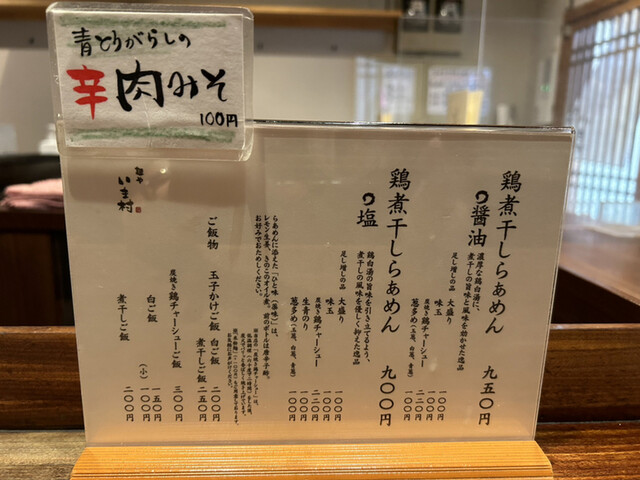 青とうがらしの
辛肉みそ
100円
鶏煮干しらぁめん
醤油
九五〇円
濃厚な鶏白湯に、
煮干しの旨味と風味を効かせた逸品
足し増しの品
大盛り
一〇〇円
味玉
一〇〇円
炭焼き鶏チャーシュー
二二〇円
葱多め(玉葱、白葱、青葱)
一〇〇円
鶏煮干しらぁめん
塩
九〇〇円
鶏白湯の旨味を引き立てるよう、
煮干しの風味を優しく抑えた逸品
足し増しの品
大盛り
一〇〇円
味玉
一〇〇円
炭焼き鶏チャーシュー
二二〇円
生青のり
一〇〇円
葱多め(玉葱、白葱、青葱)
一〇〇円
らぁめんに添えた「ひと味(薬味)」は、
レモン生姜、きのこのオイル煮。前のボトルは唐辛子酢。
お好みでおためしください。
ご飯物
玉子かけご飯
白ご飯
二〇〇円
煮干しご飯
二五〇円
炭焼き鶏チャーシューご飯
三〇〇円
白ご飯
一五〇円
(小)
一〇〇円
煮干しご飯
二〇〇円
麺や
いま村